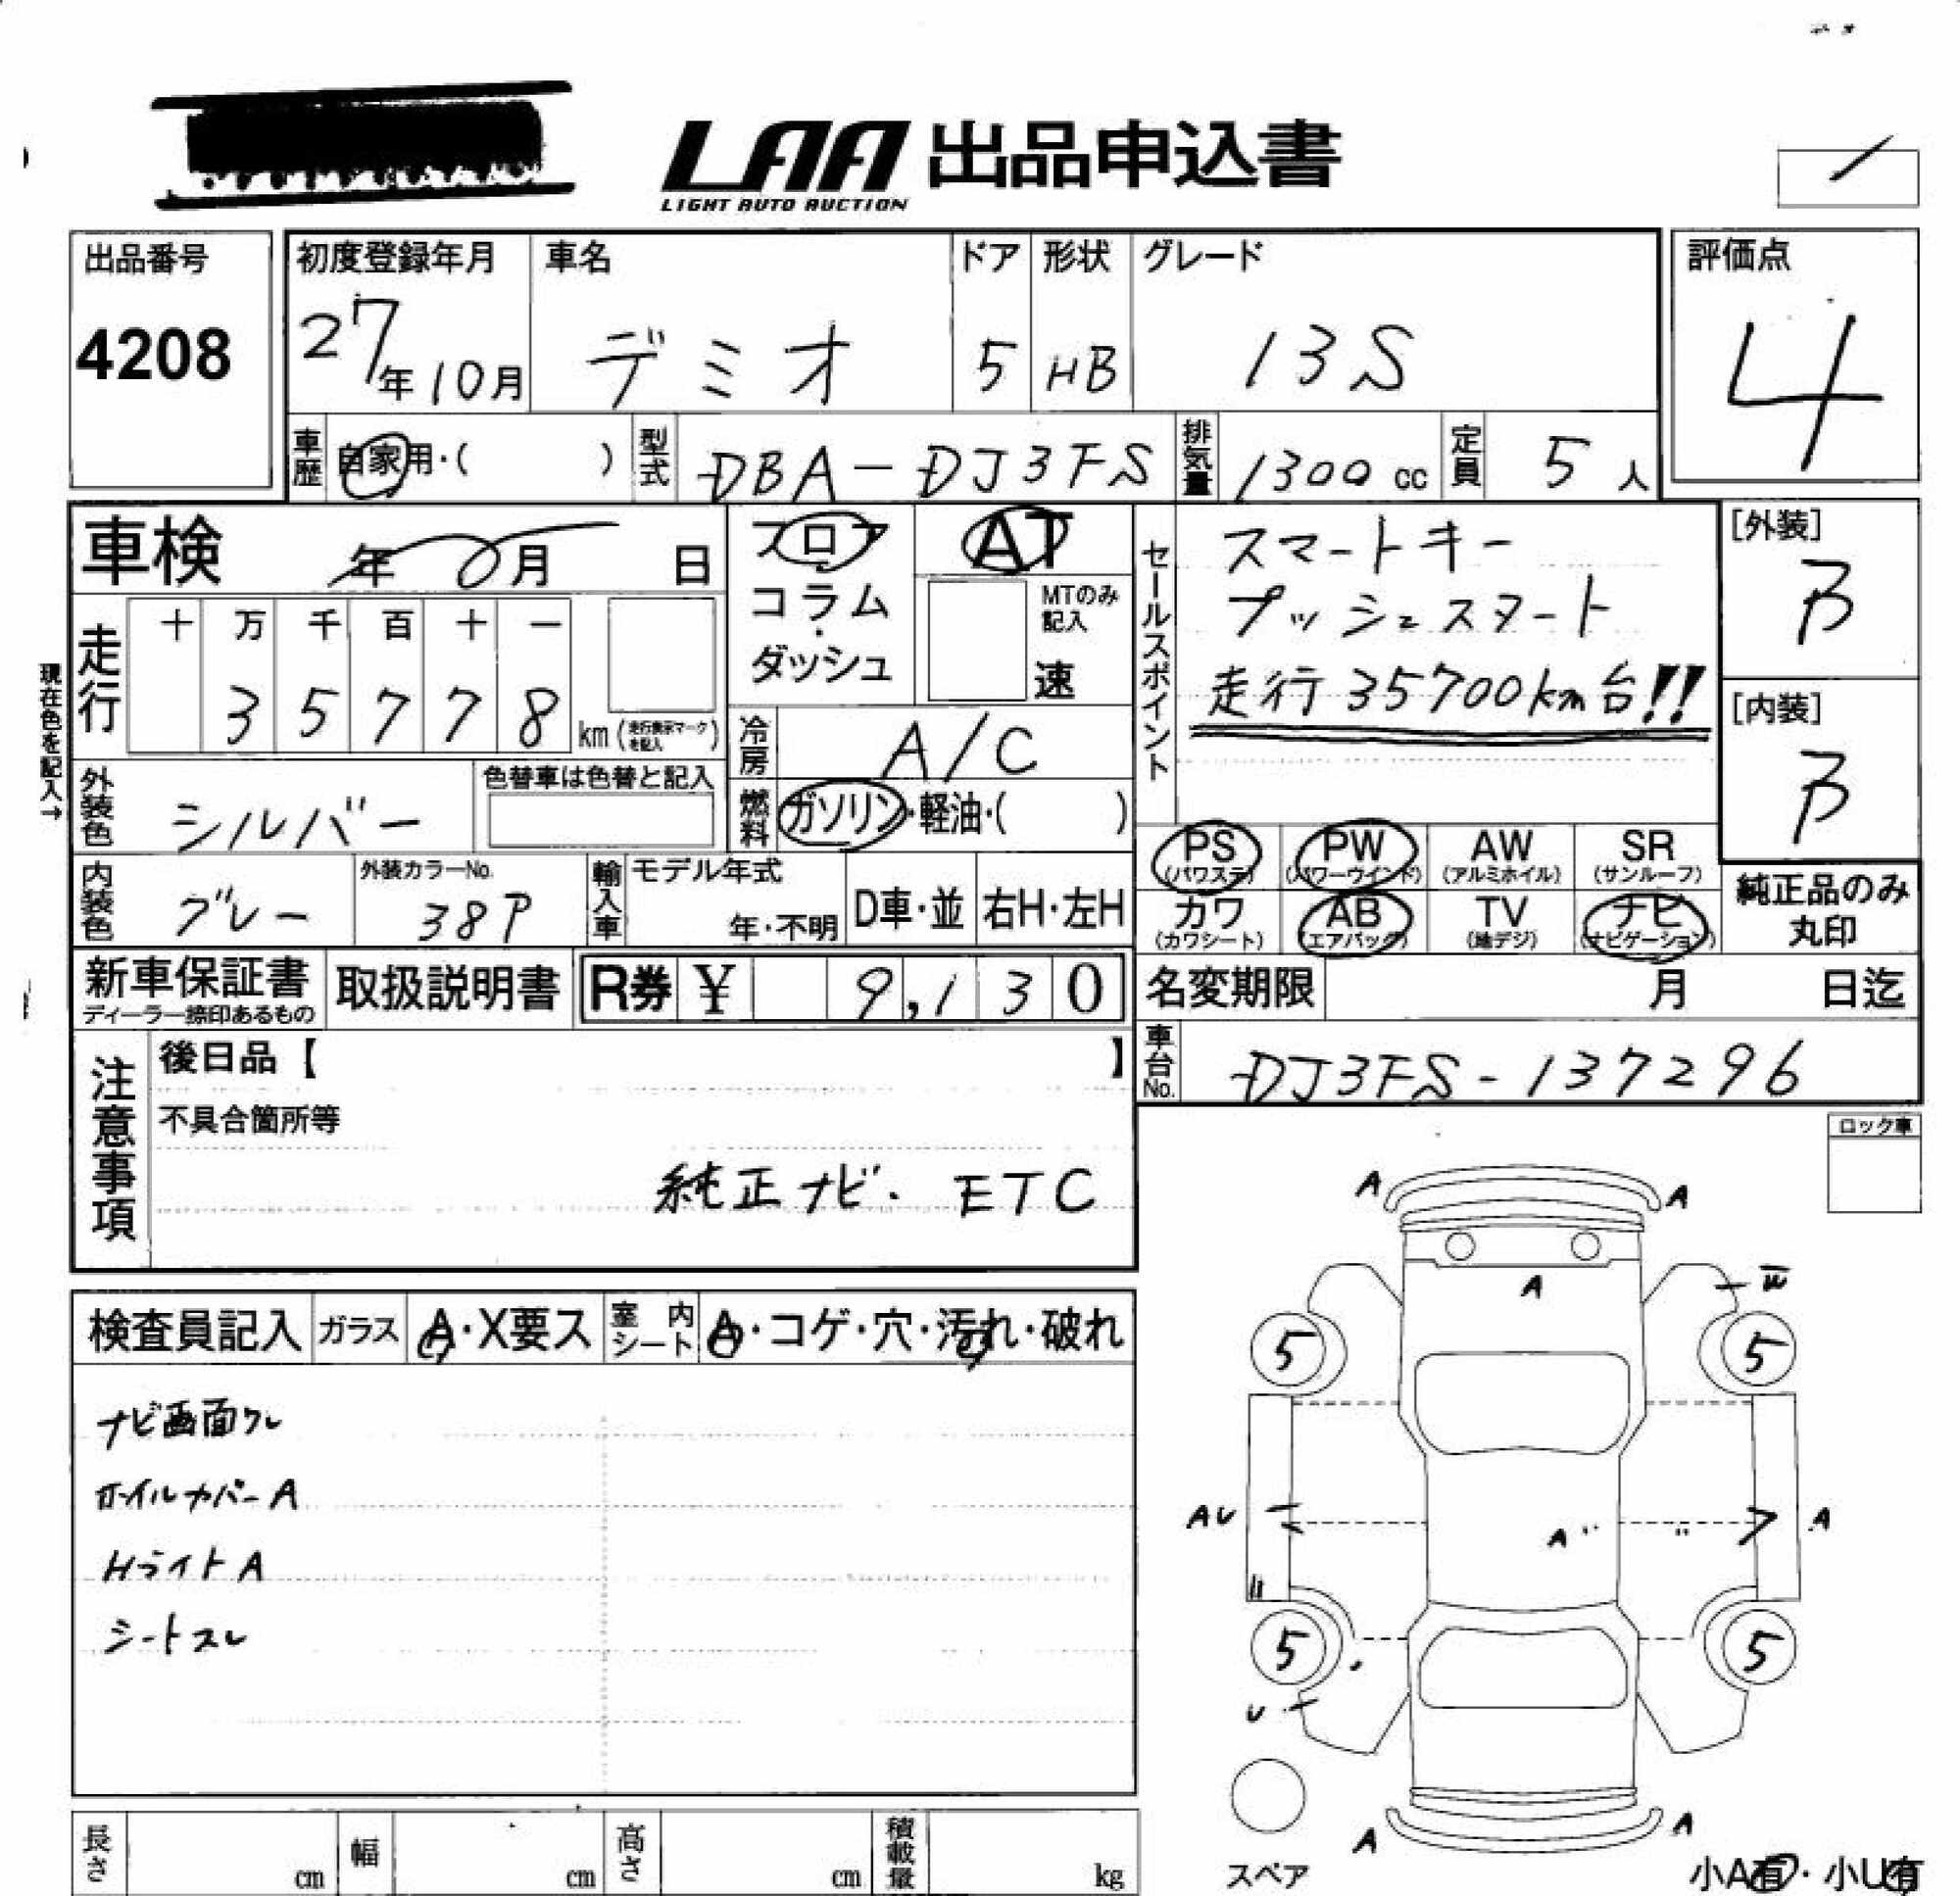 LAA 出品申込書
LIGHT AUTO AUCTION
出品番号
4208
初度登録年月
27年10月
車名
デミオ
ドア
5
形状
HB
グレード
13S
評価点
4
車歴
自家用・( )
型式
DBA-DJ3FS
排気量
1300cc
定員
5人
車検
年 月 日
フロア
コラム
・
ダッシュ
AT
MTのみ
記入
速
セールスポイント
スマートキー
プッシュスタート
走行35700km台!!
[外装]
B
[内装]
B
現在色を記入→
走行
十 万 千 百 十 一
3 5 7 7 8
km(走行表示マークを記入)
冷房
A/C
燃料
ガソリン・軽油・( )
外装色
シルバー
色替車は色替と記入
PS
(パワステ)
PW
(パワーウインド)
AW
(アルミホイル)
SR
(サンルーフ)
カワ
(カワシート)
AB
(エアバッグ)
TV
(地デジ)
ナビ
(ナビゲーション)
純正品のみ
丸印
内装色
グレー
外装カラーNo.
38P
輸入車
モデル年式
年・不明
D車・並
右H・左H
新車保証書
ディーラー捺印あるもの
取扱説明書
R券 ¥ 9,130
名変期限
月 日迄
車台No.
DJ3FS-137296
注意事項
後日品【 】
不具合箇所等
純正ナビ・ETC
ロック車
検査員記入
ガラス
A・X要ス
室内シート
A・コゲ・穴・汚れ・破れ
ナビ画面ワレ
ホイルカバーA
HライトA
シートスレ
A A
A
5 5
AU A" " A
5 5
U
A A
スペア
小A有・小U有
長さ cm
幅 cm
高さ cm
積載量 kg